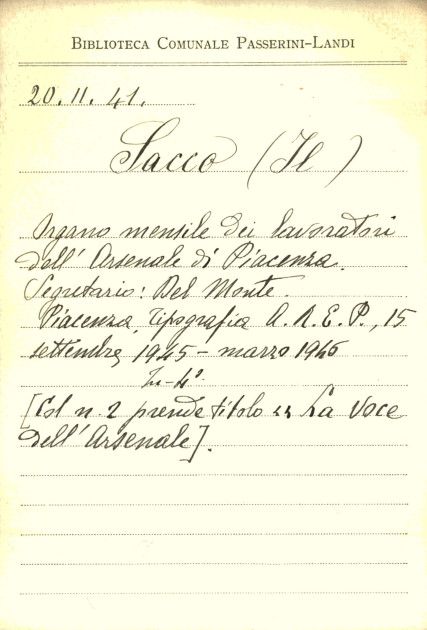 BIBLIOTECA COMUNALE PASSERINI-LANDI
20. 11. 41.
Sacco (Il)
Organo mensile dei lavoratori
dell' Arsenale di Piacenza.
Segretario: Del Monte.
Piacenza, Tipografia A. R. E. P., 15
settembre, 1945 - marzo 1946
In-4°.
[Col n. 2 prende titolo << La Voce
dell'Arsenale].